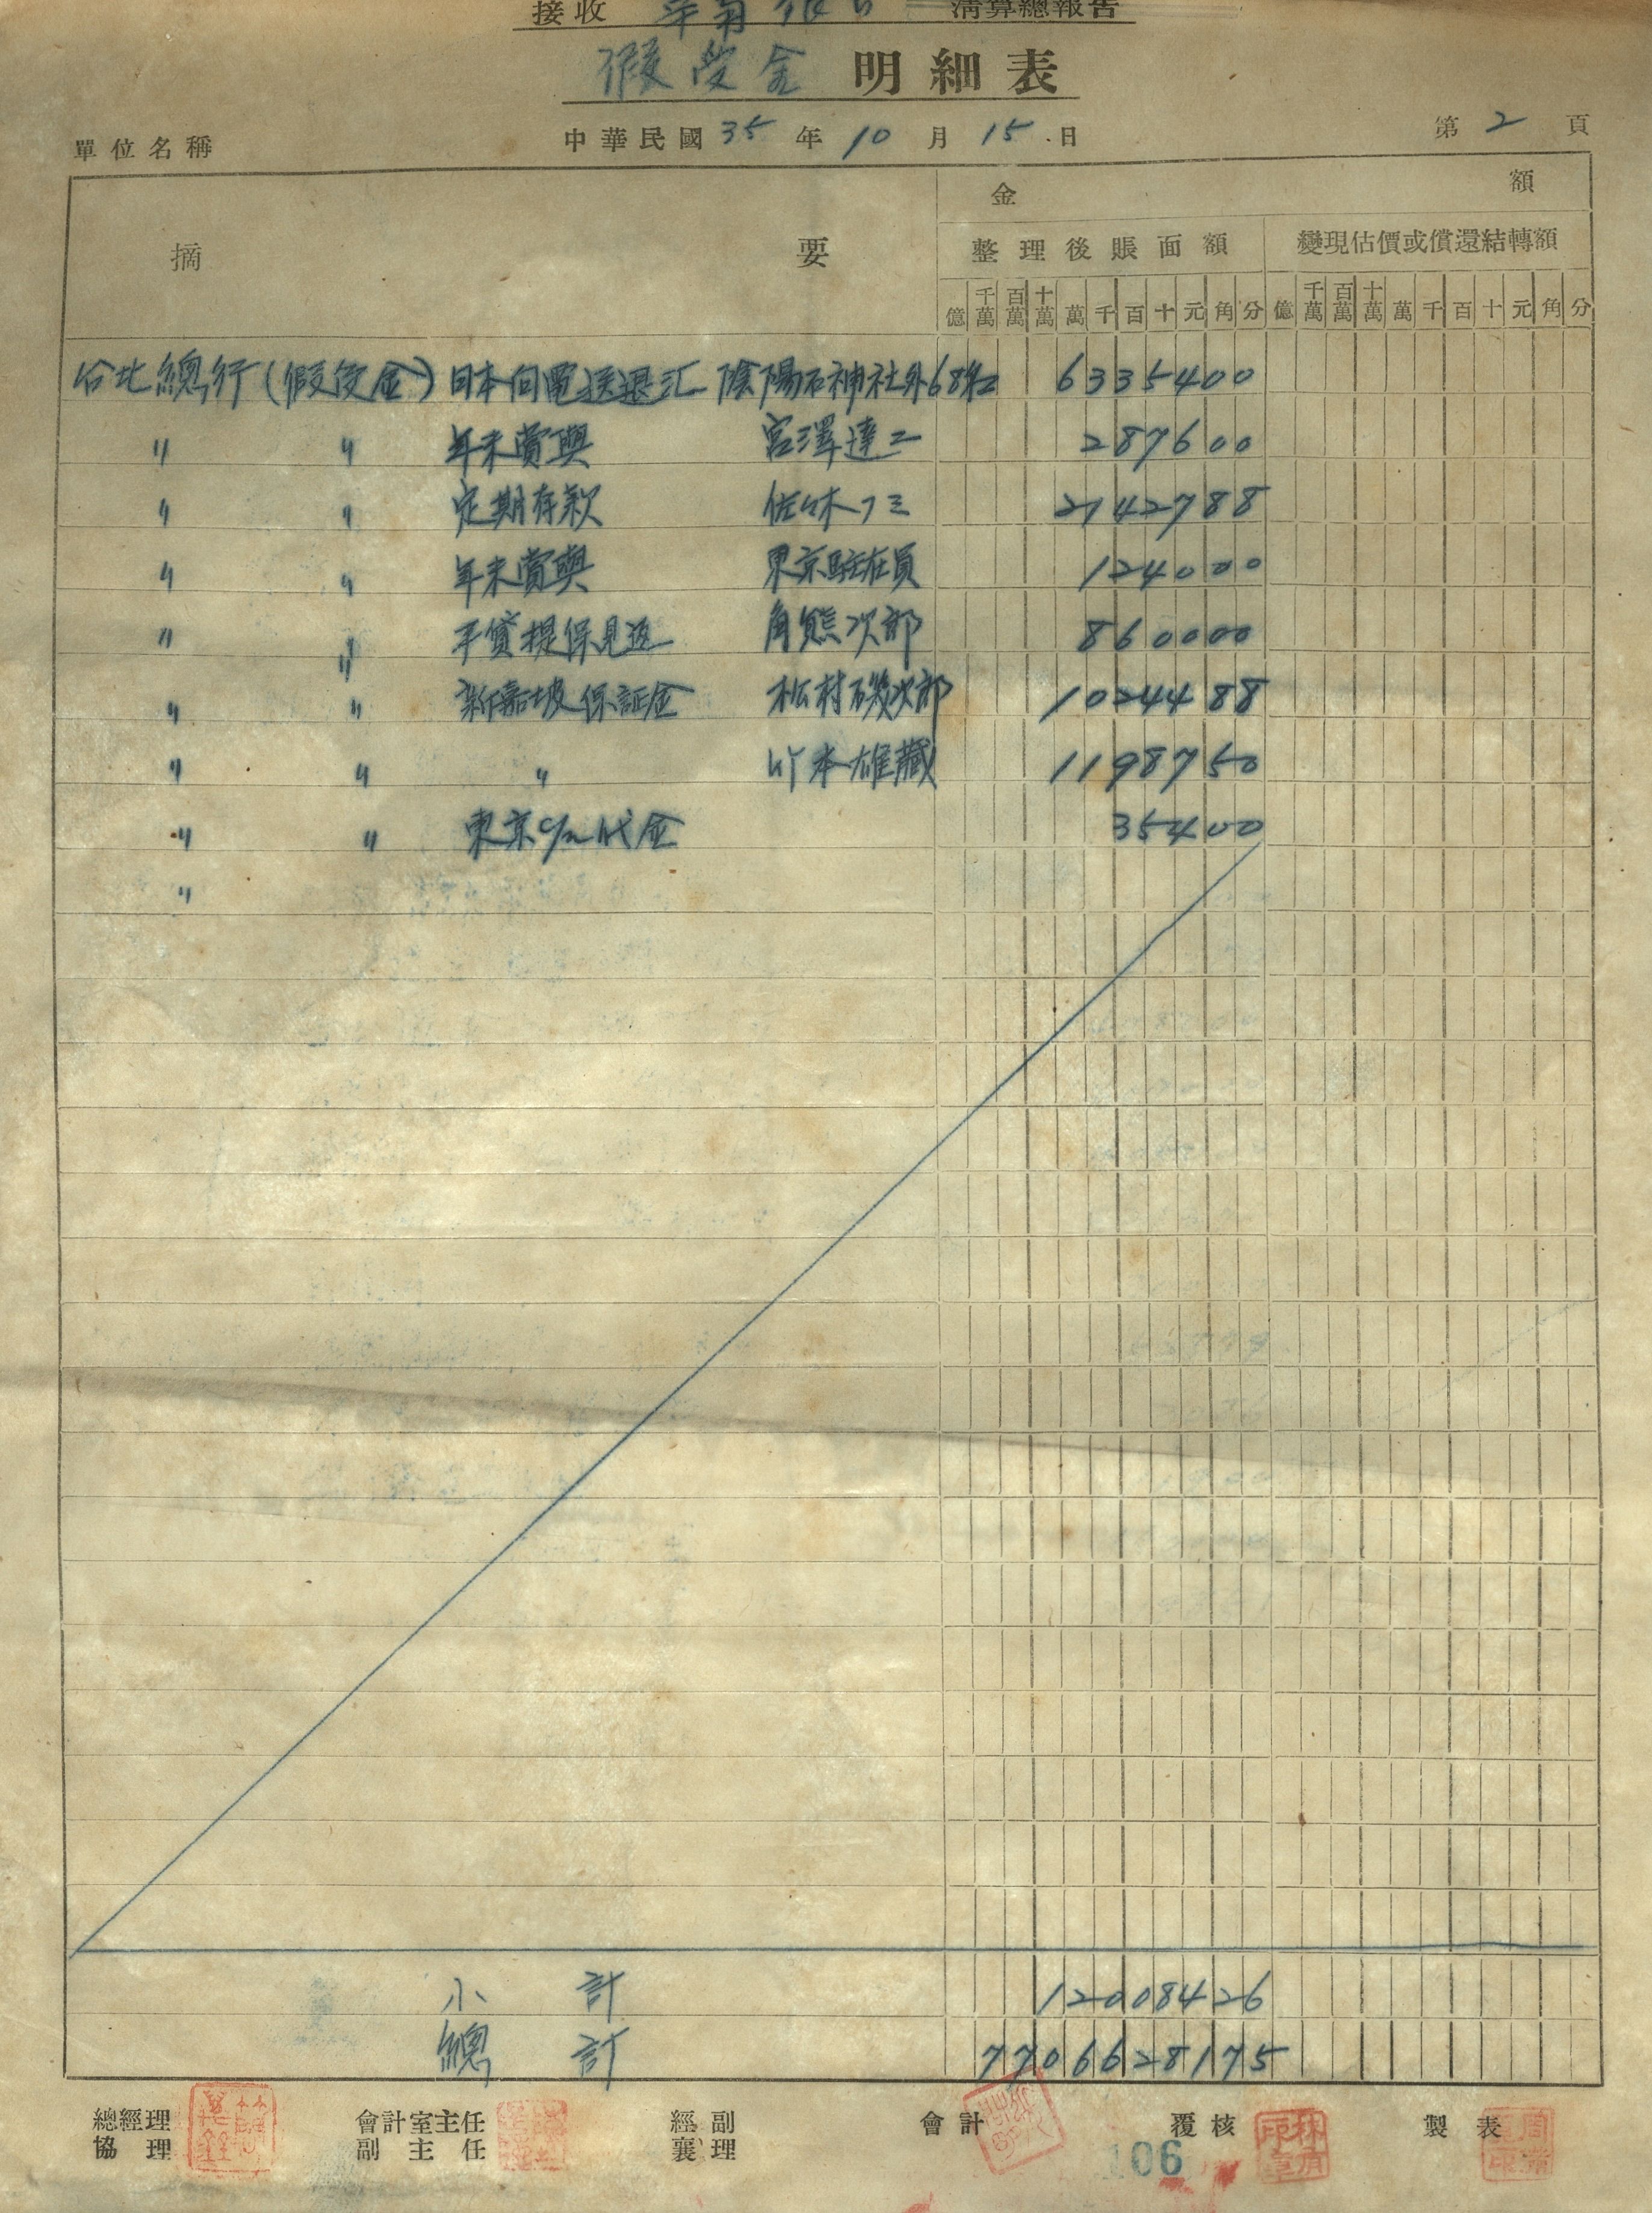 接收 華南銀行 清算總報告
假受金 明細表
單位名稱 中華民國 35 年 10 月 15 日 第 2 頁
摘 要 金 額
整理後賬面額 變現估價或償還結轉額
億 千萬 百萬 十萬 萬 千 百 十 元 角 分 億 千萬 百萬 十萬 萬 千 百 十 元 角 分
台北總行(假受金) 日本向電送退汇 陰陽石神社外68件 6335400
〃 〃 年末賞與 宮澤達二 287600
〃 〃 定期存款 佐々木フミ 2142788
〃 〃 年末賞與 東京駐在員 124000
〃 〃 手貸提保見返 角熊次郎 860000
〃 〃 新嘉坡保証金 松村磯次郎 1024488
〃 〃 〃 竹本雄藏 1198750
〃 〃 東京 代金 35400
〃
小計 12008426
總計 7706628175
總經理 會計室主任 經副 會計 覆核 製表
協理 副主任 襄理
106